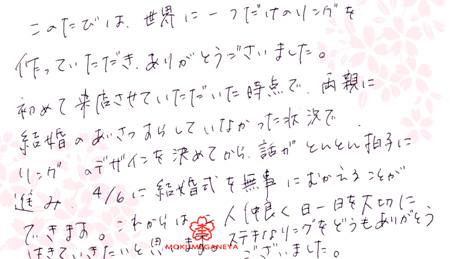 このたびは、世界に一つだけのリングを
作っていただき、ありがとうございました。
初めて来店させていただいた時点で、両親に
結婚のあいさつすらしていなかった状況で
リングのデザインを決めてから、話がとんとん拍子に
進み、4/6に結婚式を無事にむかえることが
できます。これからは二人仲良く日一日を大切に
いきていきたいと思います。ステキなリングをどうもありがとう
ございました。
MOKUMEGANEYA